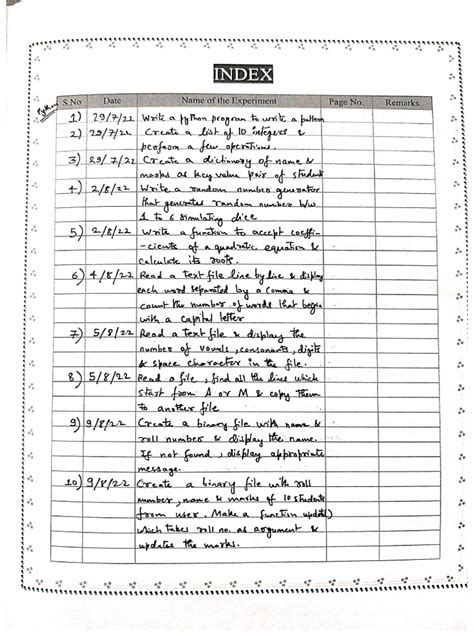 INDEX
Python
S.No Date Name of the Experiment Page No. Remarks
1) 29/7/22 Write a python program to write a python
2) 29/7/22 Create a list of 10 integers &
perform a few operations.
3) 29/7/22 Create a dictionary of name &
marks as key value pair of student
4) 2/8/22 Write a random number generator
that generates random number b/w
1 to 6 simulating dice
5) 2/8/22 Write a function to accept coeffi-
cients of a quadratic equation &
calculate its roots.
6) 4/8/22 Read a text file line by line & display
each word separated by a comma &
count the number of words that begin
with a capital letter
7) 5/8/22 Read a text file & display the
number of vowels, consonants, digits
& space character in the file.
8) 5/8/22 Read a file, find all the lines which
start from A or M & copy them
to another file
9) 9/8/22 Create a binary file with name &
roll number & display the name.
If not found, display appropriate
message.
10) 9/8/22 Create a binary file with roll
number, name & marks of 10 students
from user. Make a function update()
which takes roll no. as argument &
updates the marks.